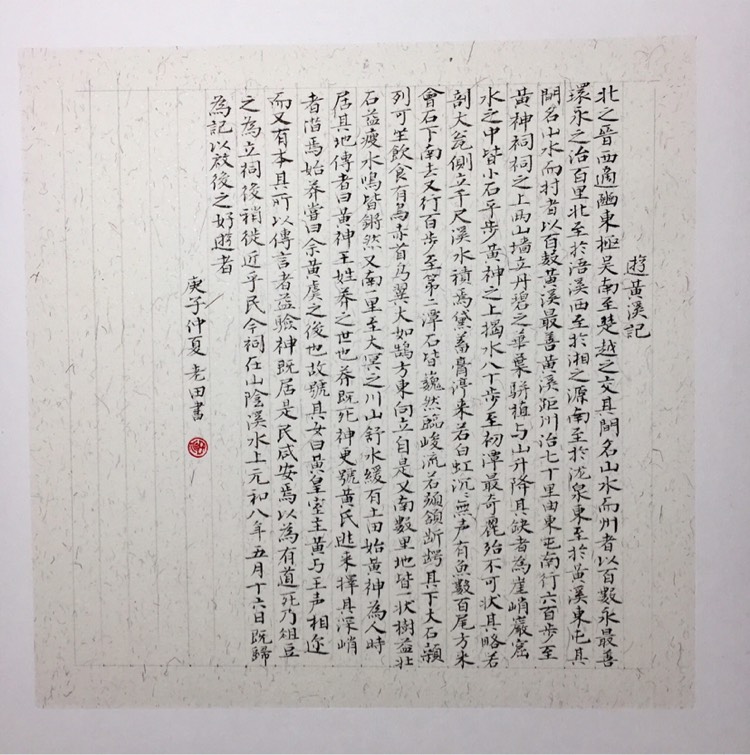 遊黃溪記
北之晉西適豳東極吳南至楚越之交其間名山水而州者以百數永最善
環永之治百里北至於浯溪西至於湘之源南至於瀧泉東至於黃溪東屯其
間名山水而村者以百數黃溪最善黃溪距州治七十里由東屯南行六百步至
黃神祠祠之上兩山墻立丹碧之華葉駢植与山升降其缺者為崖峭巖窟
水之中皆小石平步黃神之上揭水八十步至初潭最奇麗殆不可狀其略若
剖大瓮側立千尺溪水積焉黛蓄膏渟来若白虹沉沉無声有魚數百尾方来
會石下南去又行百步至第二潭石皆巍然臨峻流若頦頷齗齶其下大石
列可坐飲食有鳥赤首烏翼大如鵠方東向立自是又南數里地皆一狀樹益壯
石益瘦水鳴皆鏘然又南一里至大冥之川山舒水緩有土田始黃神為人時
居其地傳者曰黃神王姓莽之世也莽既死神更號黃氏逃来擇其深峭
者潛焉始莽嘗曰余黃虞之後也故號其女曰黃皇室主黃与王声相迩
而又有本其所以傳言者益驗神既居是民咸安焉以為有道死乃俎豆
之為立祠後稍徙近乎民今祠在山陰溪水上元和八年五月十六日既歸
為記以啟後之好遊者
庚子仲夏老田書